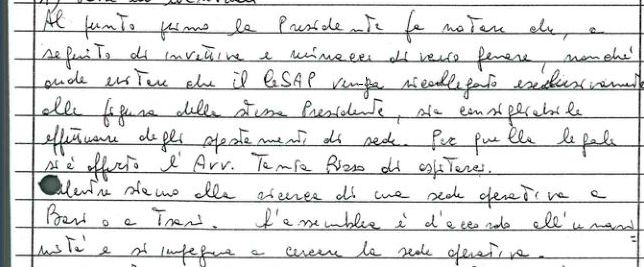 Al punto primo la Presidente fa notare che, a
seguito di invettive e minacce di vario genere, nonché
onde evitare che il CeSAP venga ricollegato esclusivamente
alla figura della stessa Presidente, sia consigliabile
effettuare degli spostamenti di sede. Per quella legale
si è offerto l'Avv. Tania Rizzo di ospitarci.
Mentre siamo alla ricerca di una sede operativa a
Bari o a Trani. L'assemblea è d'accordo all'unani
mità e si impegna a cercare la sede operativa.